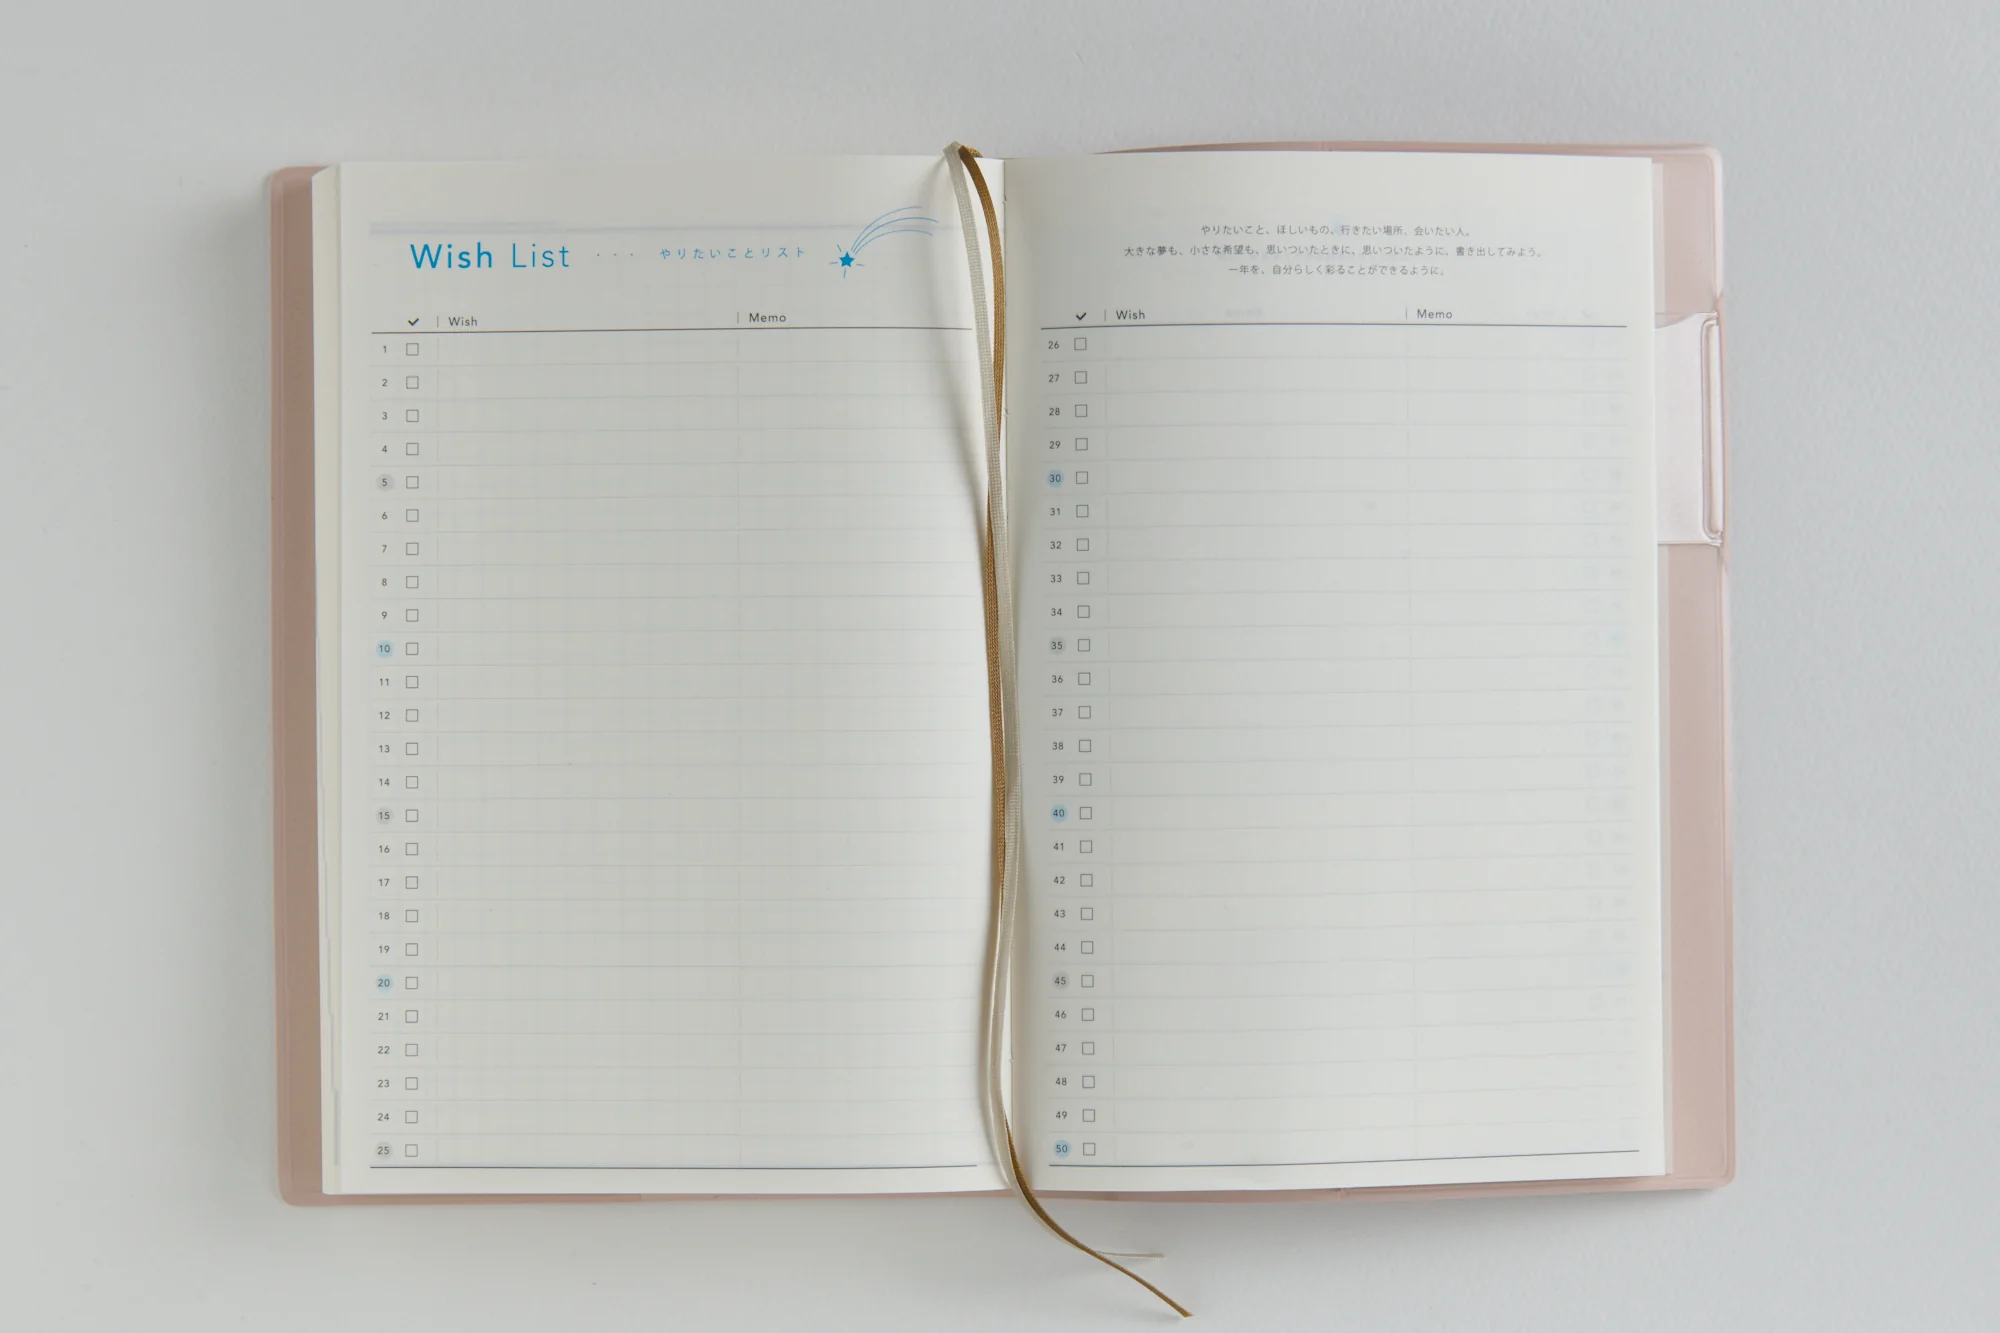 Wish List ・・・ やりたいことリスト
✓ | Wish | Memo
1
2
3
4
5
6
7
8
9
10
11
12
13
14
15
16
17
18
19
20
21
22
23
24
25
やりたいこと、ほしいもの、行きたい場所、会いたい人。
大きな夢も、小さな希望も、思いついたときに、思いついたように、書き出してみよう。
一年を、自分らしく彩ることができるように。
✓ | Wish | Memo
26
27
28
29
30
31
32
33
34
35
36
37
38
39
40
41
42
43
44
45
46
47
48
49
50